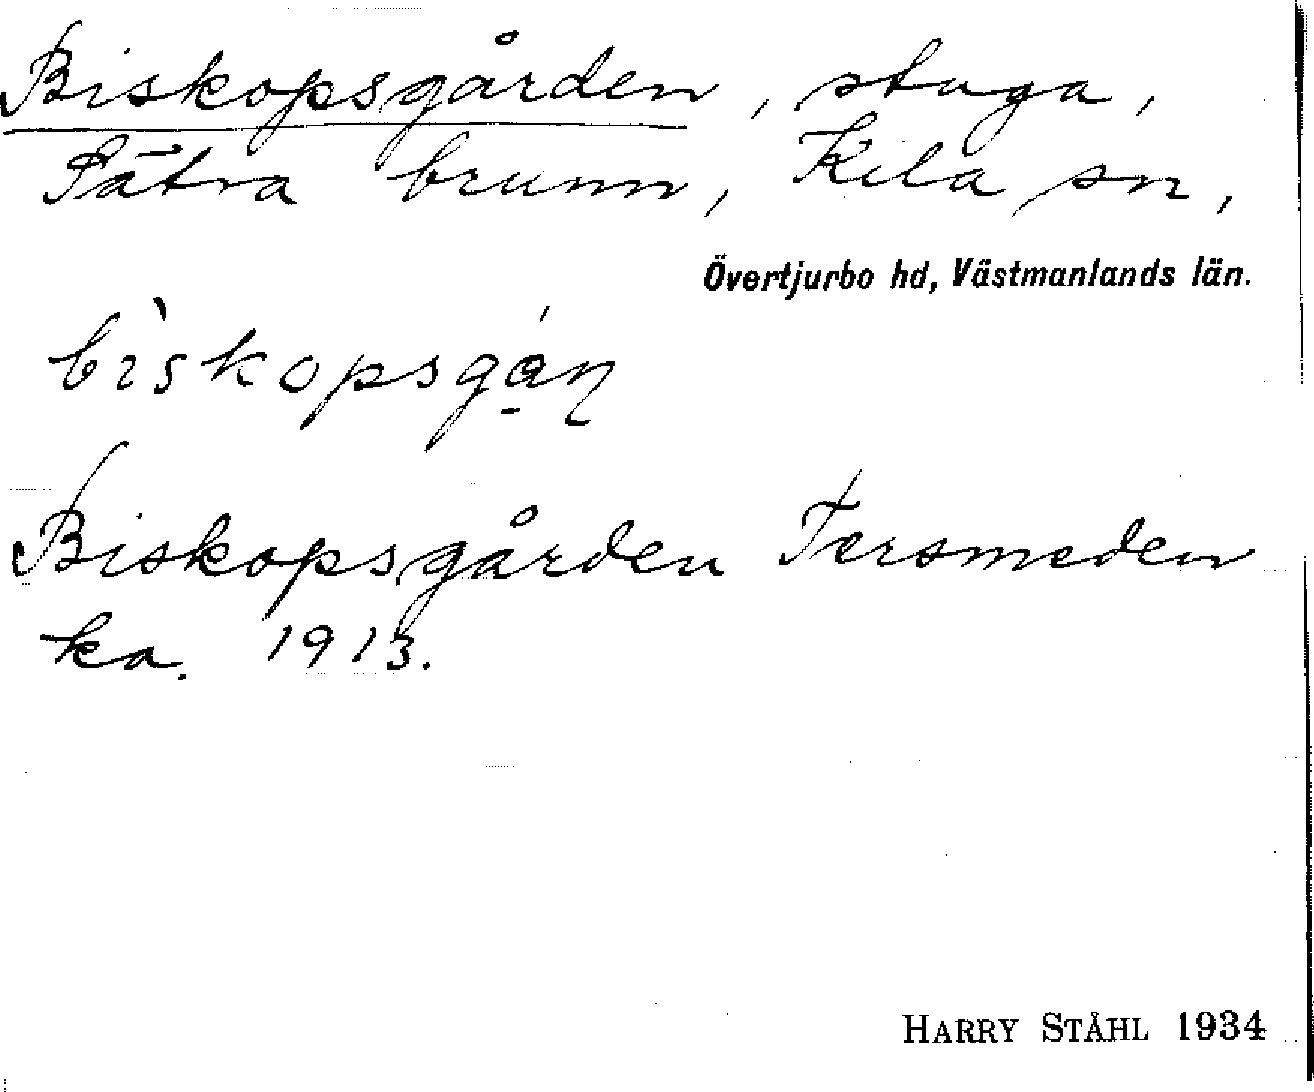 Biskopsgården, stuga,
Sätra brunn, Kila sn,
Övertjurbo hd, Västmanlands län.
bìskopsgá̱ṇ
Biskopsgården Tersmeden
ka. 1913.
HARRY STÅHL 1934